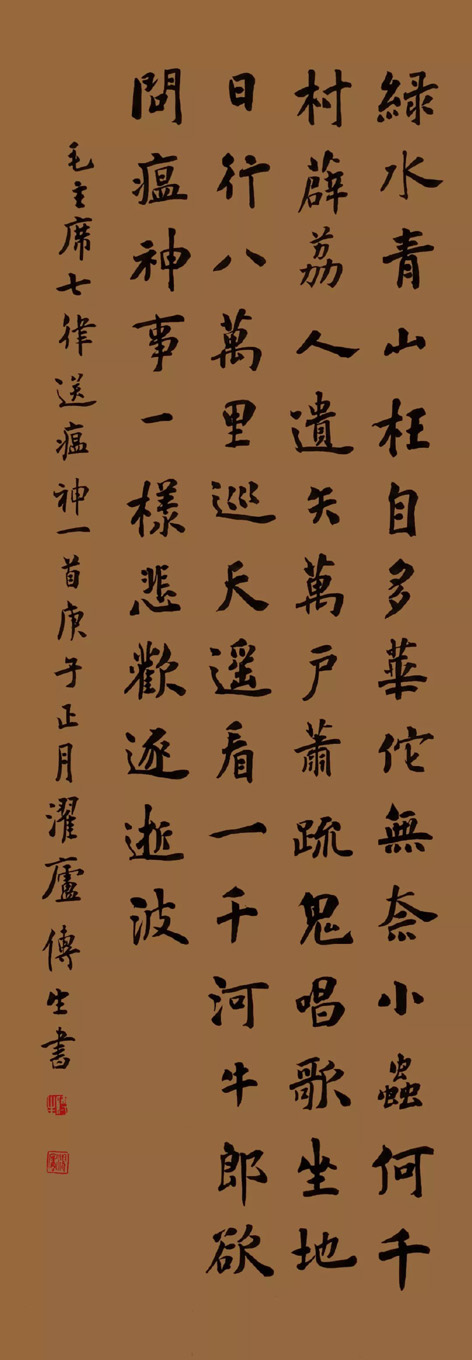 緑水青山枉自多華佗無奈小蟲何千
村薜荔人遺矢萬戶蕭疏鬼唱歌坐地
日行八萬里巡天遥看一千河牛郎欲
問瘟神事一樣悲歡逐逝波
毛主席七律送瘟神一首庚子正月濯廬傳生書